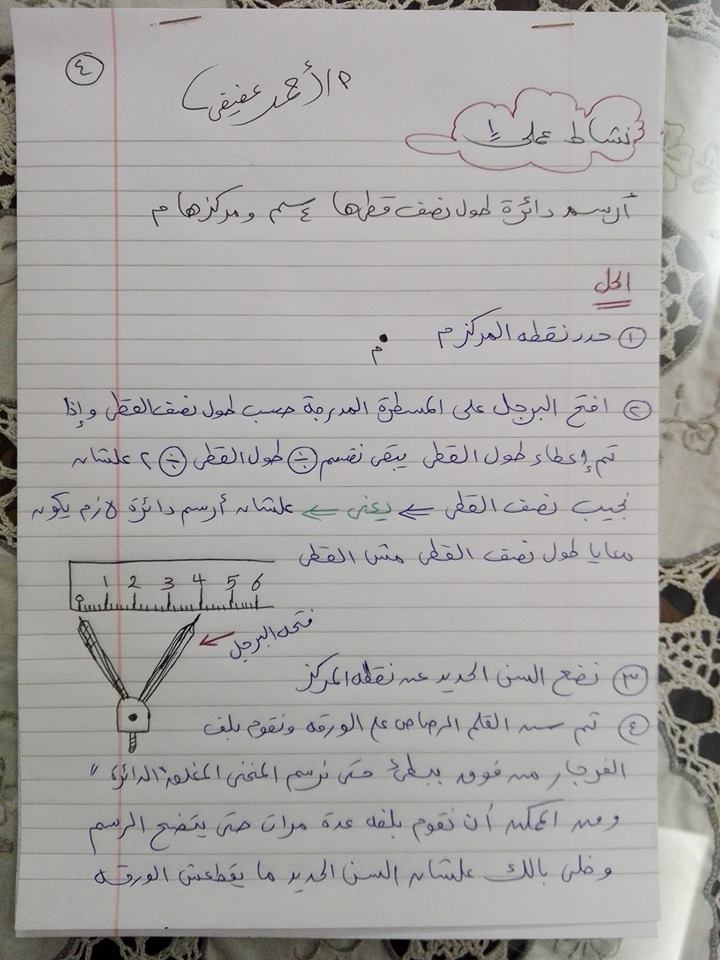 ٤
م/ أحمد عفيفي
نشاط عملى ١
أرسم دائرة طول نصف قطرها ٤ سم ومركزها م
الحل
١ حدد نقطه المركز م
م
٢ افتح البرجل على المسطرة المدرجة حسب طول نصف القطر وإذا
تم إعطاء طول القطر يبقى نقسم ÷ طول القطر ÷ ٢ علشان
نجيب نصف القطر ⇐ يعنى ⇐ علشان أرسم دائرة لازم يكون
معايا طول نصف القطر مش القطر
0 1 2 3 4 5 6
فتحه البرجل
٣ نضع السن الحديد عند نقطه المركز
٤ ثم سن القلم الرصاص على الورقه ونقوم بلف
الفرجار من فوق ببطئ حتى نرسم المنحنى المغلق "الدائرة"
ومن الممكن أن نقوم بلفه عدة مرات حتى يتضح الرسم
وخلى بالك علشان السن الحديد ما يقطعش الورقه